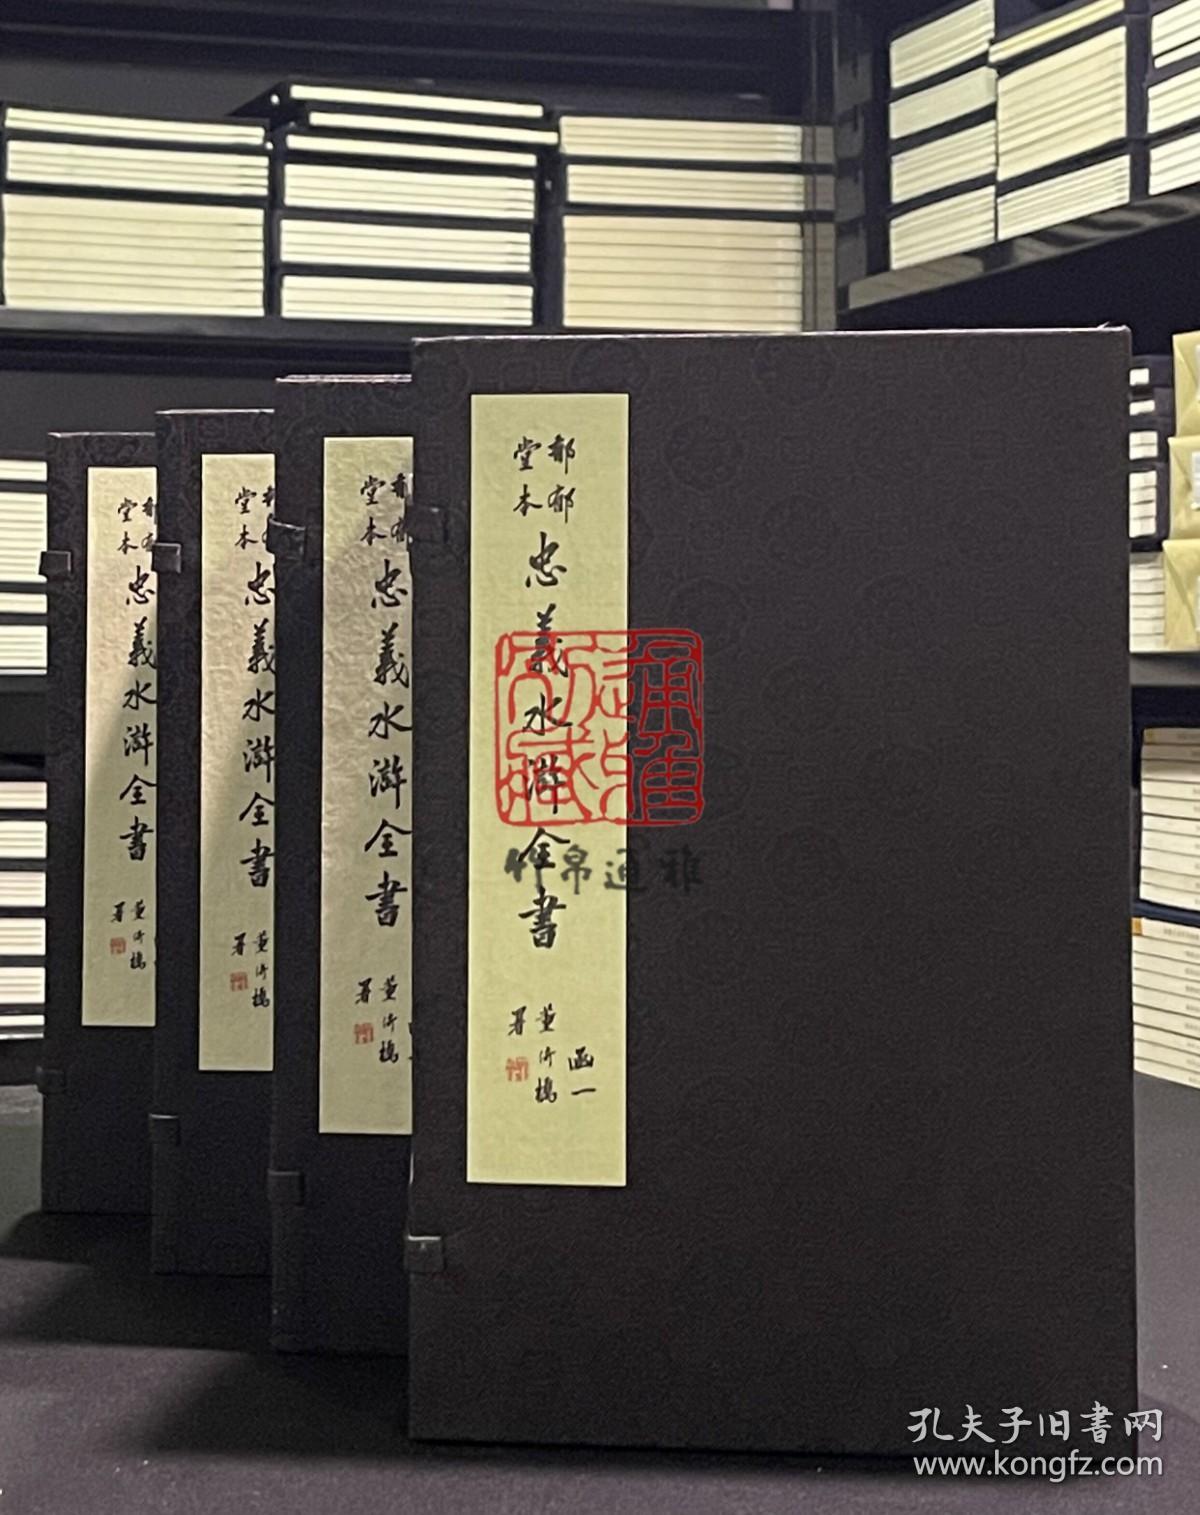 郁郁
堂本
忠義水滸全書
函一
董沂橋
署
郁郁
堂本
忠義水滸全書
董沂橋
署
郁郁
堂本
忠義水滸全書
董沂橋
署
郁郁
堂本
忠義水滸全書
董沂橋
署
竹帛通雅
孔夫子旧書网
www.kongfz.com